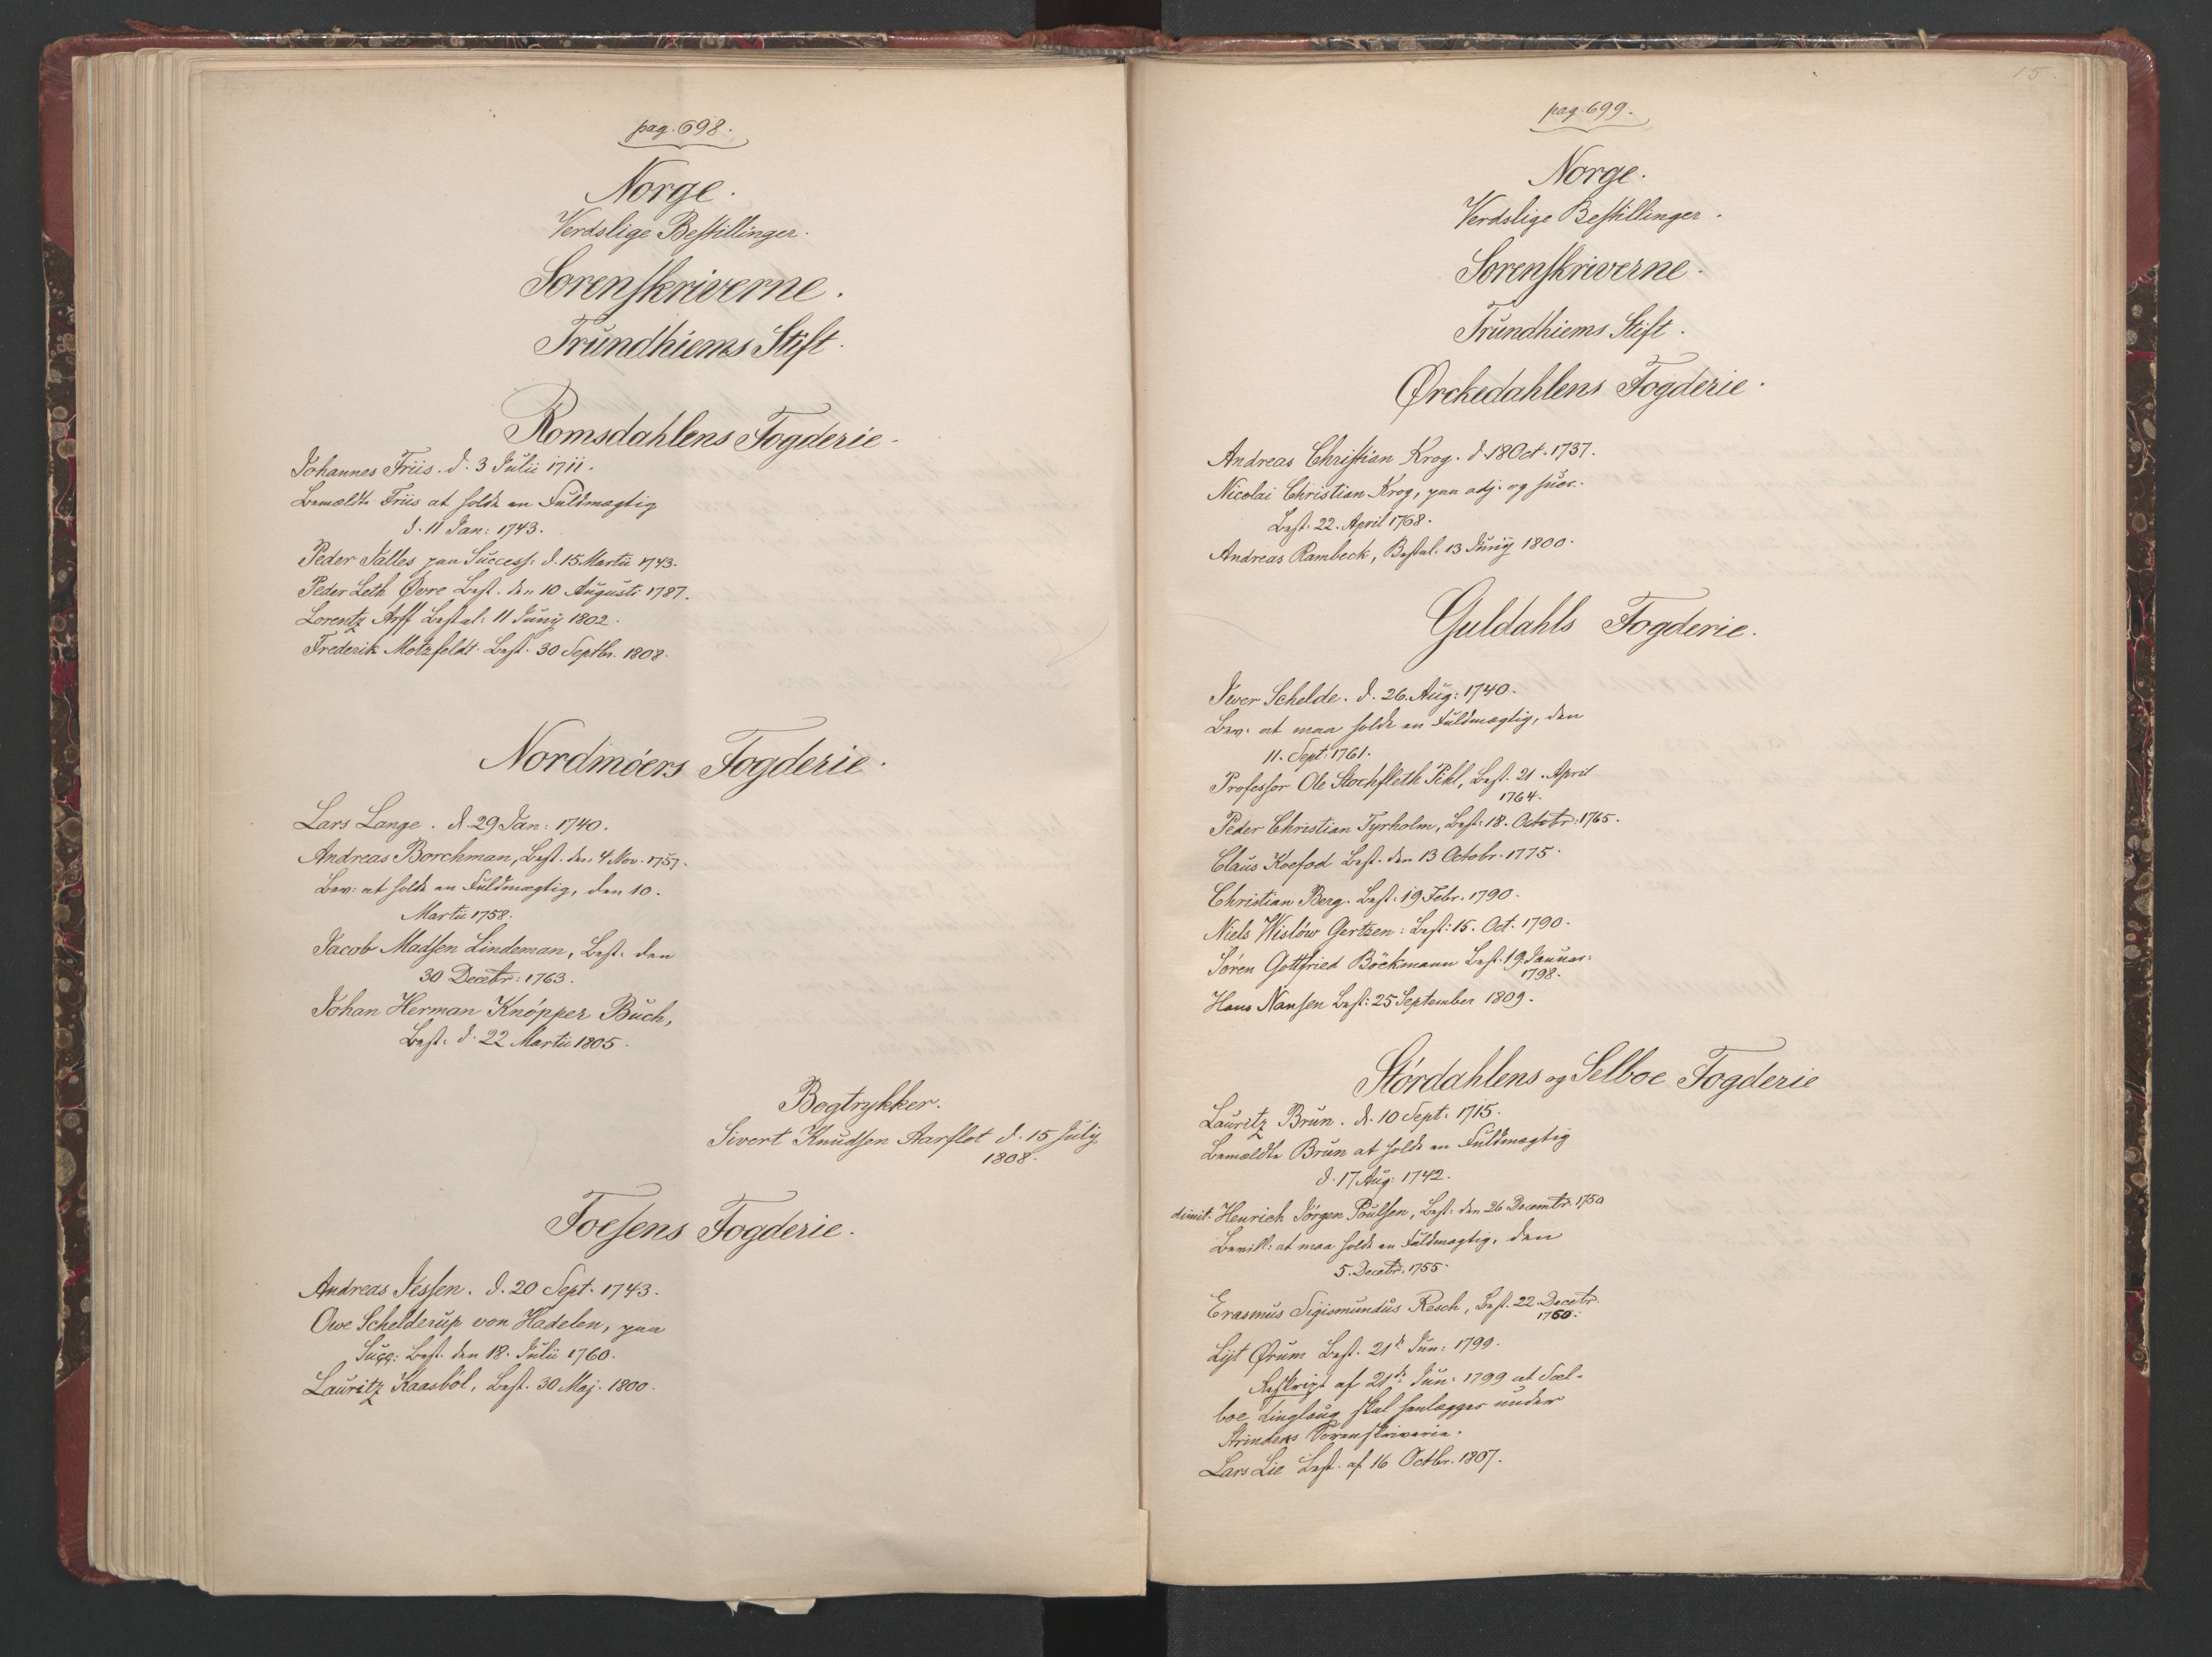 pag. 698.
Norge.
Verdslige Bestillinger.
Sorenskriverne.
Trundhiems Stift.
Romsdahlens Fogderie.
Johannes Friis. d. 3 Julii 1711.
Bemeldte Friis at holde en Fuldmægtig
d. 11 Jan: 1743.
Peder Salles paa Success. d. 15. Martii 1743.
Peder Leth Øvre Best. den 10 Augusti 1787.
Lorentz Arff Bestal: 11 Juny 1802.
Frederik Motzfeldt Best. 30 Septbr. 1808.
Nordmöers Fogderie.
Lars Lange. d. 29 Jan: 1740.
Andreas Borchman, Best. den 4 Nov. 1757.
Bev: at holde en Fuldmægtig, den 10.
Martii 1758.
Jacob Madsen Lindeman, Best. den
30 Decebr: 1763.
Johan Herman Knöpper Buch,
Best. d. 22 Martii 1805.
Bogtrykker.
Sivert Knudsen Aarflot d. 15 July
1808.
Foesens Fogderie.
Andreas Jessen. d. 20 Sept. 1743.
Owe Schelderup von Hadelen, paa
Succ: Best. den 18. Julii 1760.
Lauritz Kaasböl, Best. 30 Maj. 1800.
15
pag. 699.
Norge.
Verdslige Bestillinger.
Sorenskriverne.
Trundhiems Stift.
Ørckedahlens Fogderie.
Andreas Christian Krog. d. 18 Oct. 1737.
Nicolai Christian Krog, paa adj. og succ.
Best. 22. April 1768.
Andreas Rambeck, Bestal. 13 Junij 1800.
Guldahls Fogderie.
Iver Schelde. d. 26. Aug: 1740.
Bev: at maa holde en Fuldmægtig, den
11. Sept: 1761.
Professor Ole Stochfleth Pihl, Best. 21. April
1764.
Peder Christian Tyrholm, Best: 18. Octobr: 1765.
Claus Koefod Best. den 13 Octobr. 1775.
Christian Berg. Best. 19 Febr. 1790.
Niels Wislöw Gertzen: Best: 15. Oct. 1790.
Sören Gottfried Böckmann Best. 19. Januar.
1798.
Hans Nansen Best: 25 September 1809.
Stördahlens og Selboe Fogderie
Lauritz Brun. d. 10 Sept: 1715.
Bemeldte Brun at holde en Fuldmægtig
d. 17 Aug: 1742.
dimit. Henrich Jörgen Poulsen, Best: den 26 Decembr: 1750
Bevill: at maa holde en Fuldmægtig, den
5. Decebr: 1755.
Erasmus Sigismundus Resch, Best. 22. Decebr.
1760:
Lyt Ørum Best. 21de Jun: 1799.
Reskript af 21de Jun: 1799 at Sæl-
boe Tinglaug skal henlægges under
Strindens Sorenskriverie.
Lars Lie Best. af 16 Octbr. 1807.